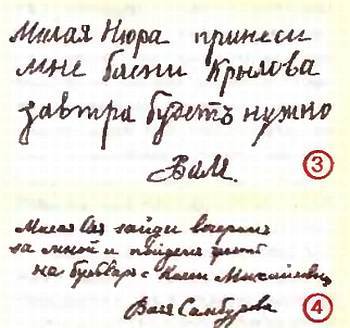 Милая Нюра принеси
мне басни Крылова
завтра будетъ нужно
Валя.
3
Милая Оля зайди вечеромъ
за мной и пойдемъ
на бульваръ с Колей Михайловичъ
Валя Самбурова
4